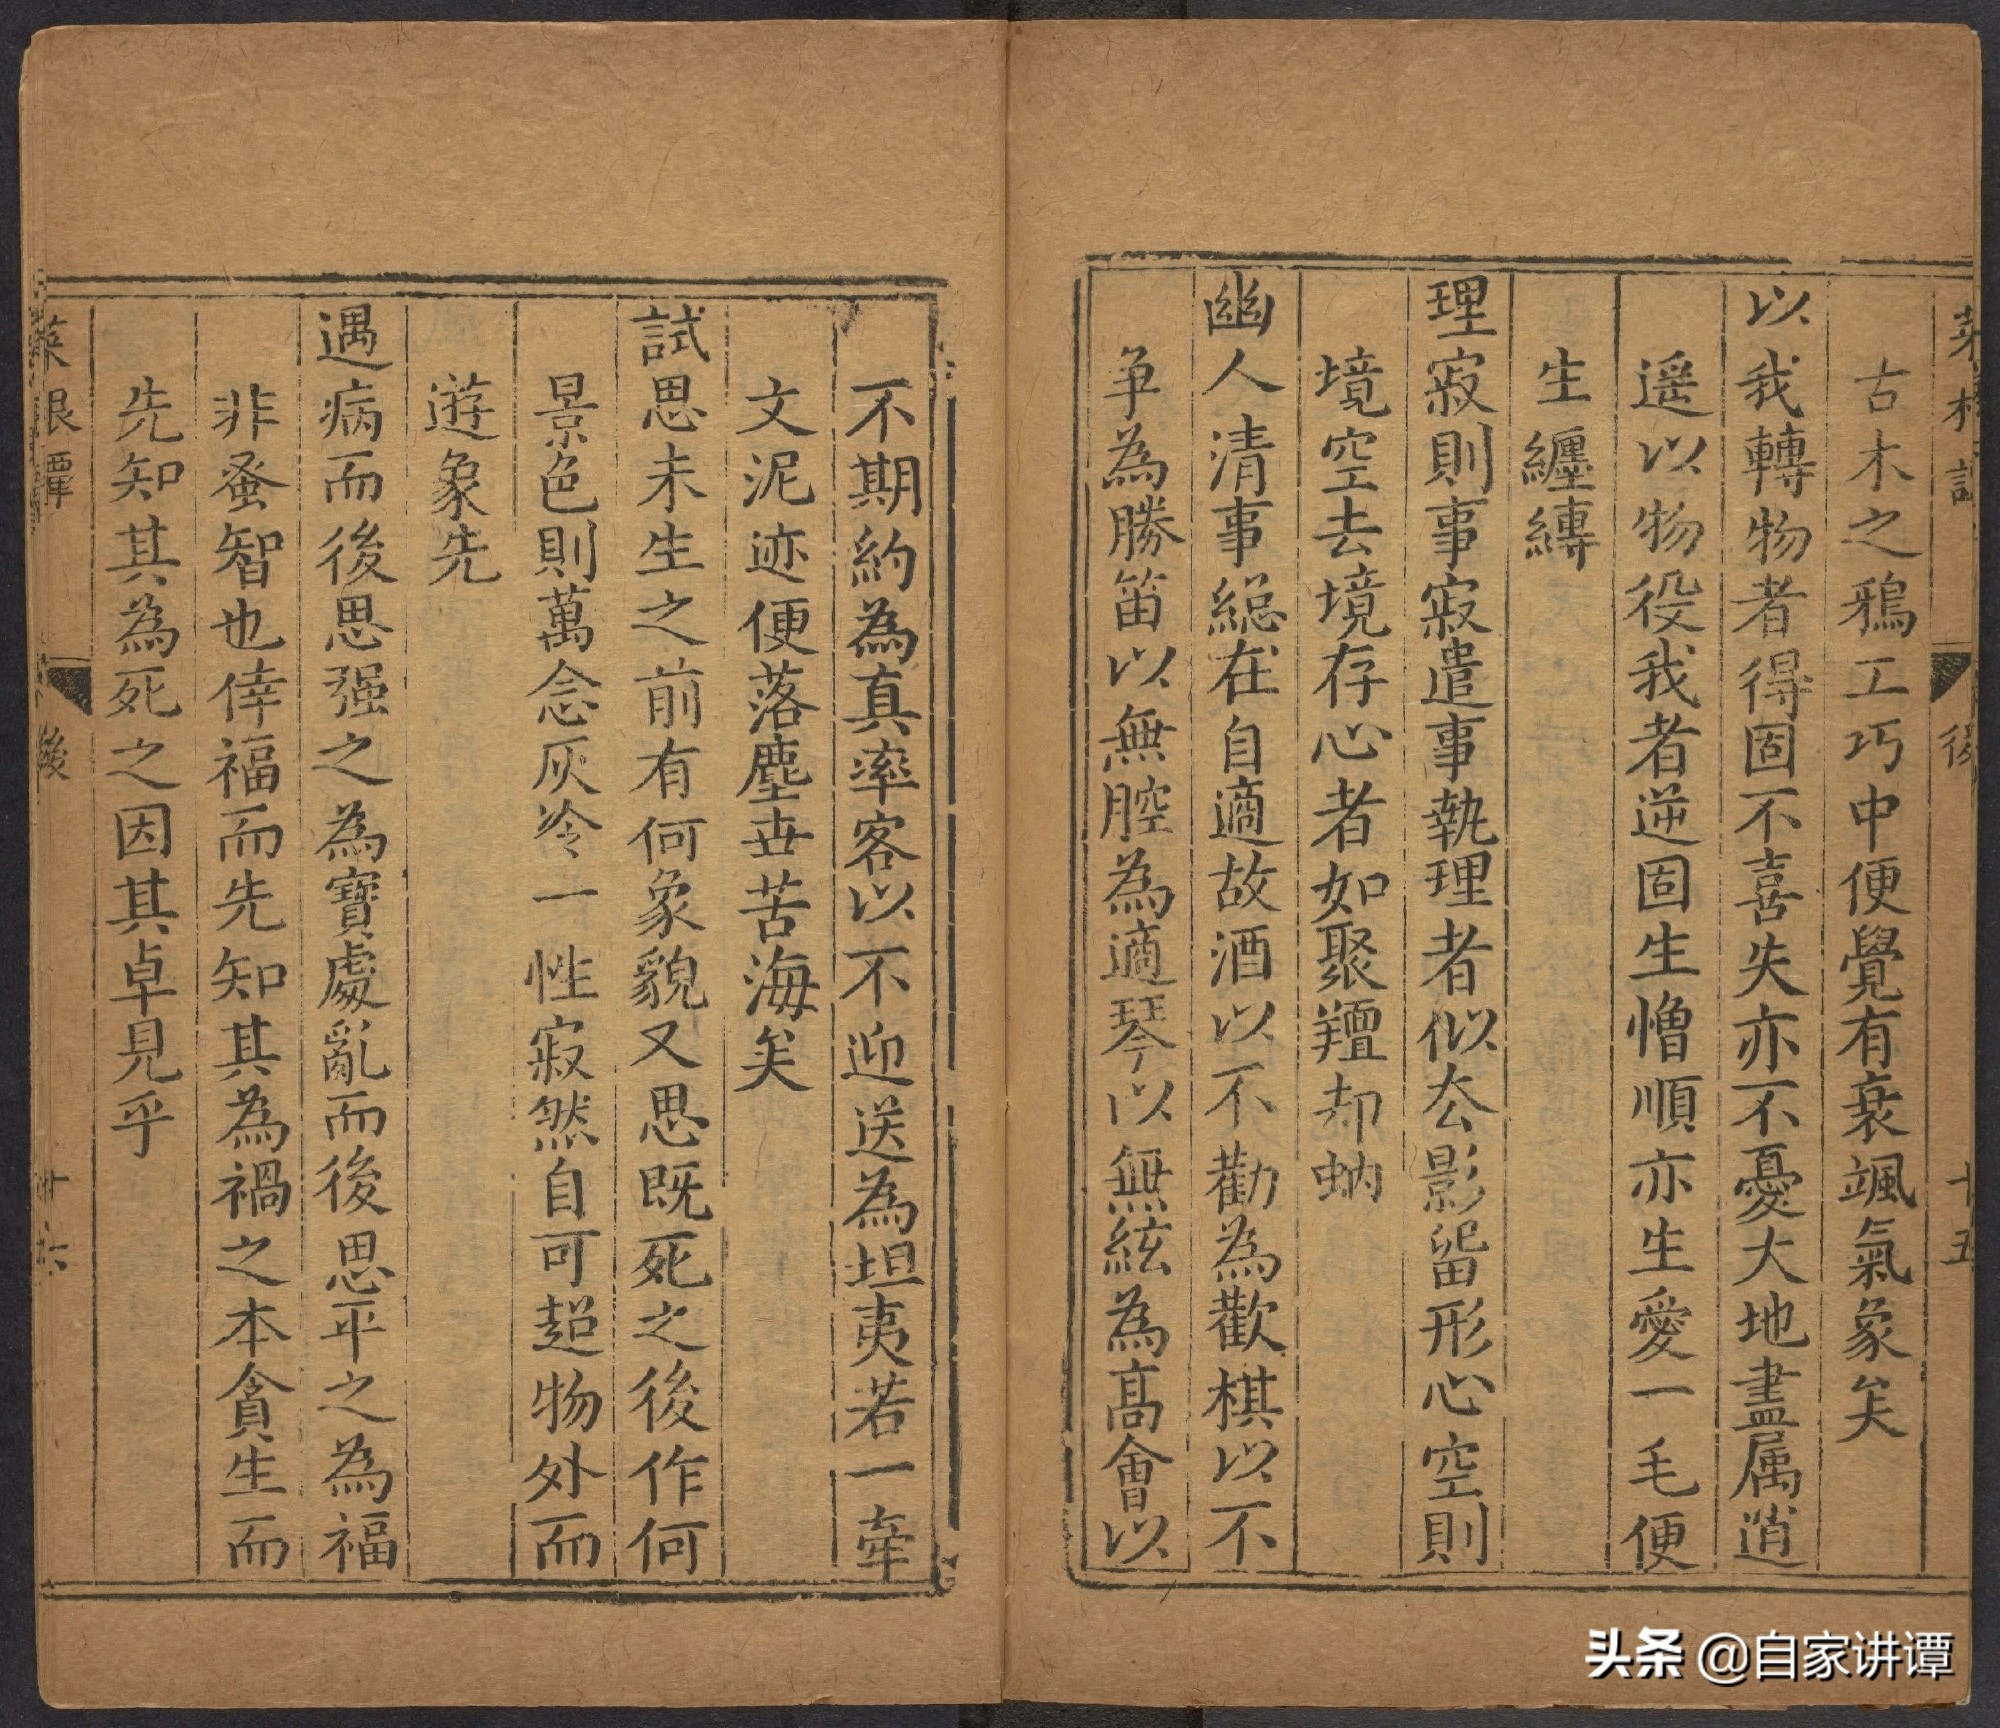 菜根譚 後 十五
古木之鴉工巧中便覺有衰颯氣象矣
以我轉物者得固不喜失亦不憂大地盡属逍
遥以物役我者逆固生憎順亦生愛一毛便
生纏縛
理寂則事寂遣事執理者似去影留形心空則
境空去境存心者如聚羶却蚋
幽人清事総在自適故酒以不勸為歡棋以不
争為勝笛以無腔為適琴以無絃為髙會以
不期約為真率客以不迎送為坦夷若一牽
文泥迹便落塵世苦海矣
試思未生之前有何象貌又思既死之後作何
景色則萬念灰冷一性寂然自可超物外而
遊象先
遇病而後思强之為寶處亂而後思平之為福
非蚤智也倖福而先知其為禍之本貪生而
先知其為死之因其卓見乎
菜根譚 後 十六
头条 @自家讲谭